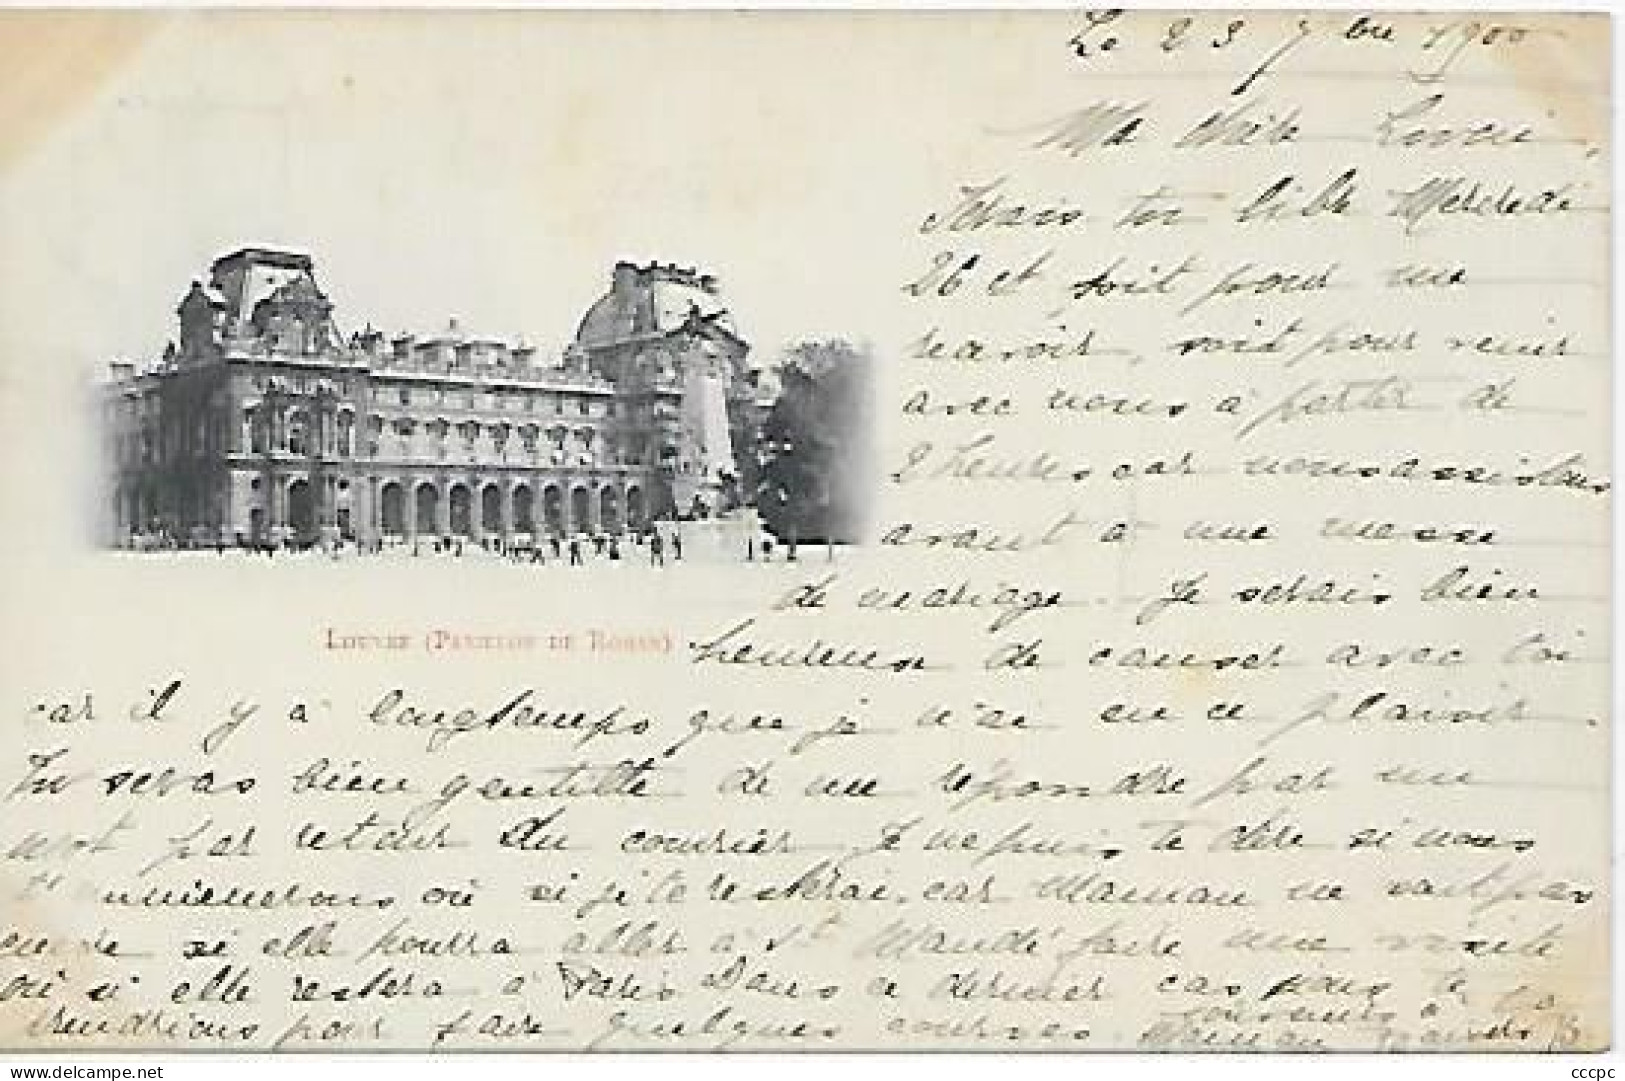 Le 23 7bre 1900
Ma chère
Serais tu libre Mercredi
26 et soit pour me
recevoir, soit pour venir
avec nous à partir de
2 heures car nous assistons
avant à une messe
de mariage. Je serais bien
LOUVRE (PAVILLON DE ROHAN)
heureuse de causer avec toi
car il y a longtemps que je n'ai eu ce plaisir.
Tu seras bien gentille de me répondre par un
mot par retour du courrier. Je ne puis te dire si nous
t'emmènerons où si je te resterai, car Maman ne sait pas
encore si elle pourra aller à St Mandé faire une visite
où si elle restera à Paris Dans ce dernier cas nous te
prendrions pour faire quelques courses.
Maman
cccpc
Delcampe.net